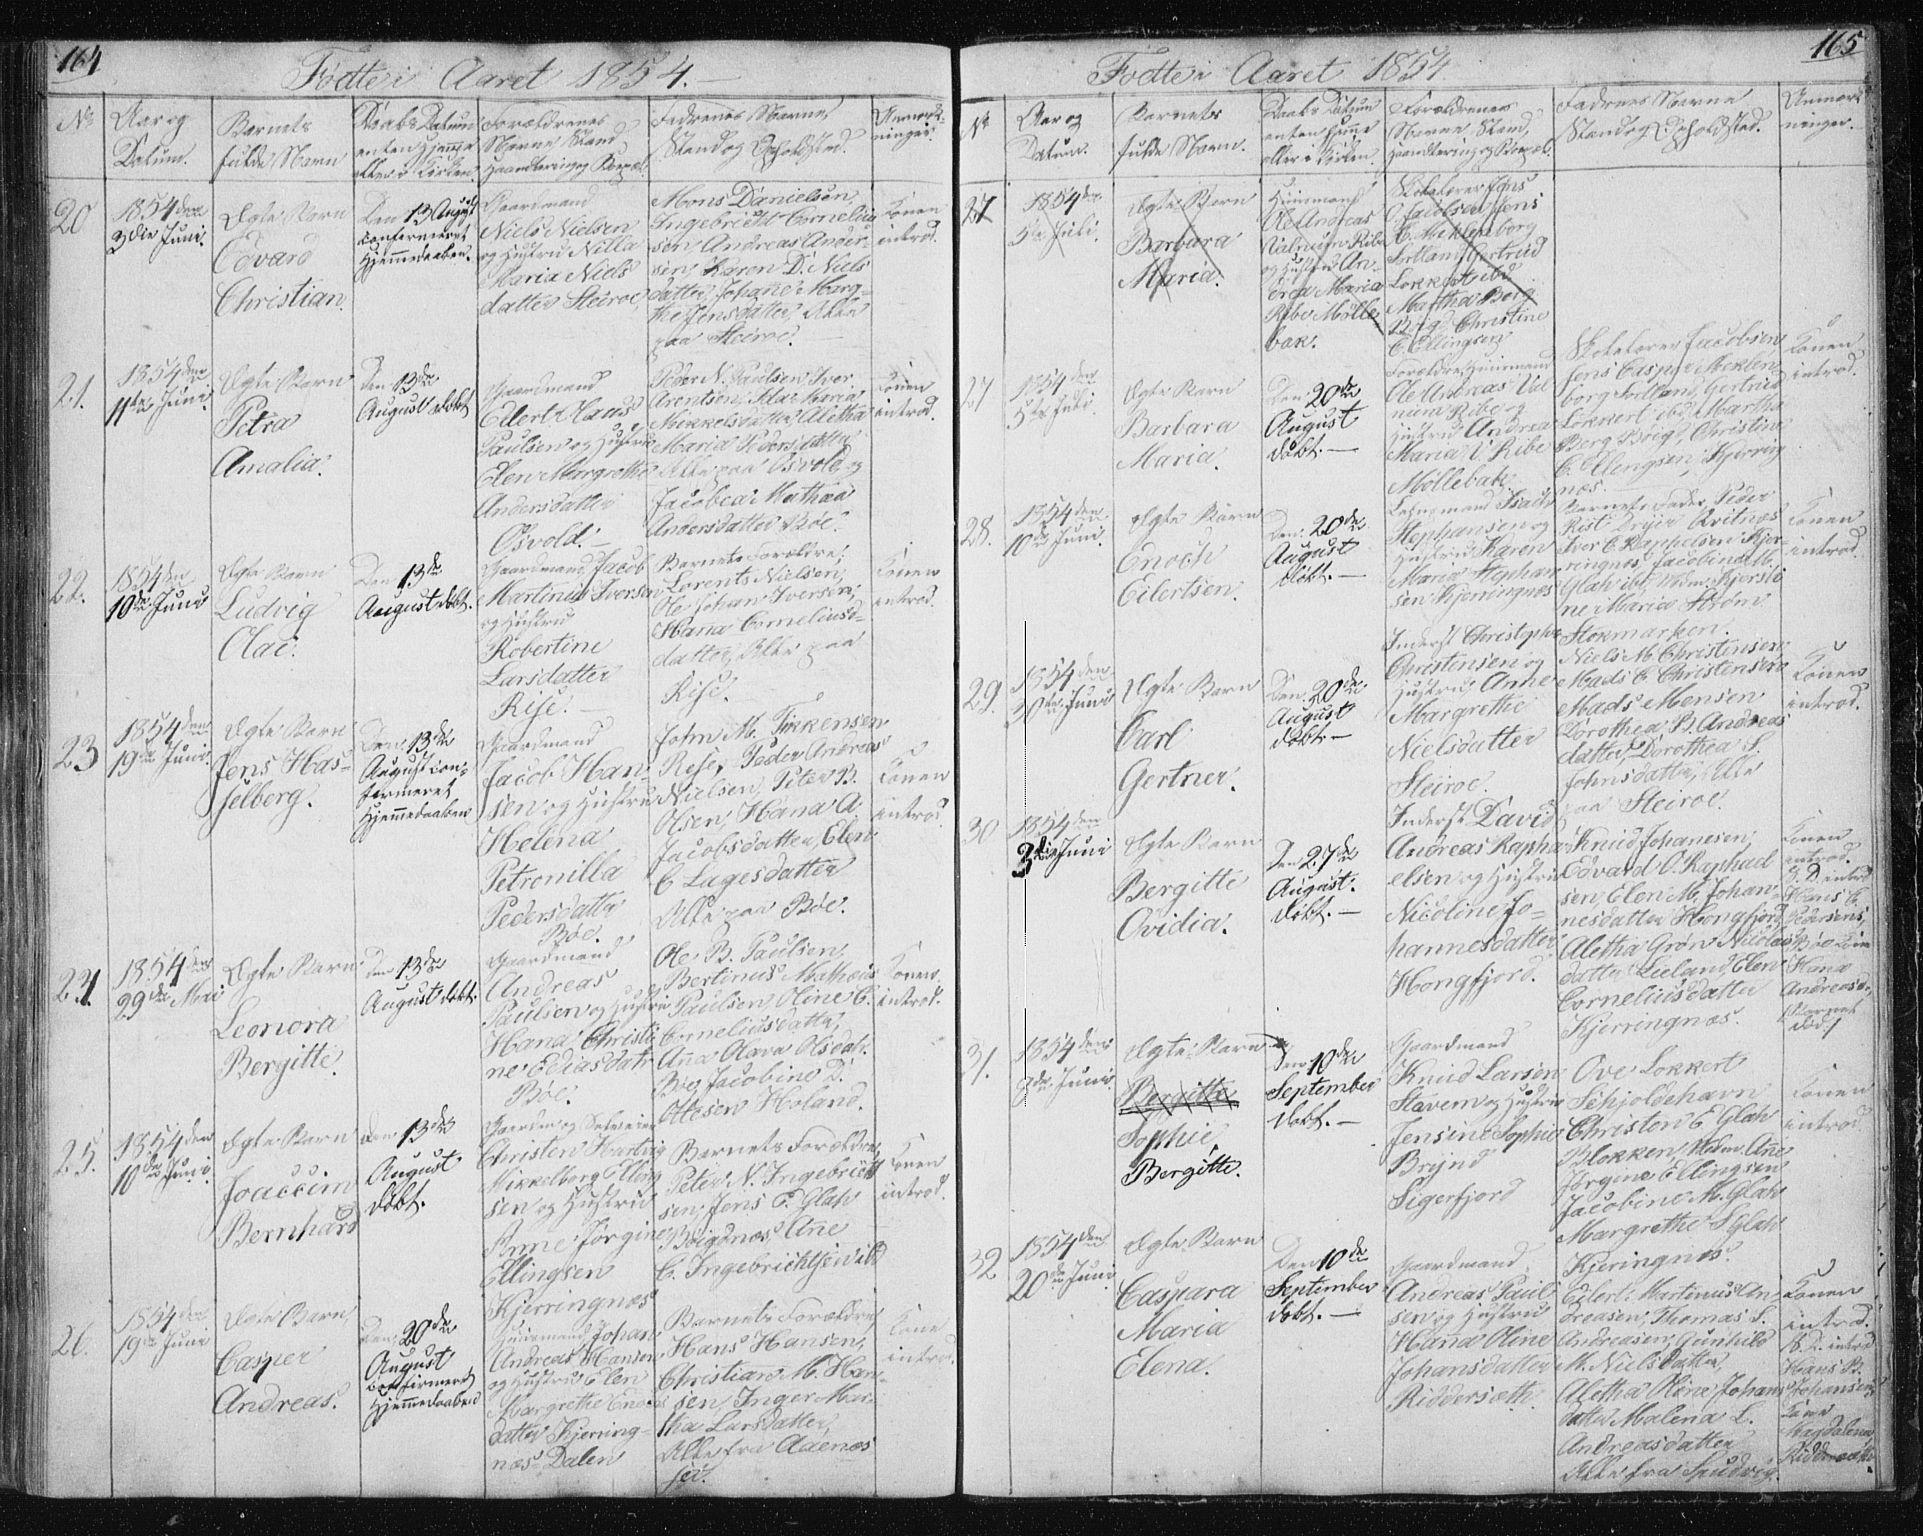 164
Födte i Aaret 1854.—
No
Aar og
Datum.
Barnets
fulde Navn
Daabs Datum
enten Hjemme
eller i Kirken.
Forældrenes
Navne Stand
Haandtering og Bopæl.
Fadrenes Navne
Stand og Opholdsted.
Anmærk-
ninger.
20
1854 den
3die Juni.
Ægte Barn
Edvard
Christian.
Den 13 August
confermeret
Hjemmedaaben.
Gaardmand
Niels Nielsen
og Hustru Nilla
Maria Niels
datter Steiroe
Mons Danielsen,
Ingebricht Cornelius
sen Andreas Ander
sen, Karen D. Niels
datter, Johane Marg-
the Jensdatter, Alle
paa Steiroe.
Konen
introd.
21.
1854 den
11te Juni.
Ægte Barn
Petra
Amalia.
Den 13de
August döbt
Gaardmand
Eilert Haus
Paulsen og Hustru
Elen Margrethe
Andersdatter
Osvold.—
Peder N. Paulsen Iver
Arentsen, Ida Maria
Mikkelsdatter, Aletha
Maria Pedersdatter
Alle paa Osvold, og
Jacobea Mathea
Andersdatter Böe.
Konen
introd.
22.
1854 den
10de Juni
Ægte Barn
Ludvig
Olai.
Den 13de
August döbt.
Gaardmand Jacob
Martinus Iversen
og Hustru
Robertine
Larsdatter
Rise.—
Barnets Forældre,
Lorents Nielsen,
Ole Johan Iversen,
Hana Corneliusd-
datter, Alle paa
Rise.—
Konen
introd.
23
1854 den
19de Juni.
Ægte Barn
Jens Has-
selberg.
Den 13de
August con-
fermeret
Hjemmedaaben
Gaardmand
Jacob Han-
sen og Hustru
Helena
Petronilla
Pedersdatter
Böe.
John M. Torkensen
Rise, Peder Andreas
Nielsen, Peter B.
Olsen, Hana A.
Jacobsdatter, Elen
C Lagesdatter
Alle paa Böe.
Konen
introd.
24
1854 den
29de Mai
Ægte Barn
Leonora
Bergitte.
Den 13de
August döbt.
Gaardmand
Andreas
Paulsen og Hustru
Hana Christi
ne Ediasdatr
Böe.
Ole B. Paulsen,
Bertinus Matheus
Paulsen, Oline C.
Corneliusdatter,
Ana Olava Olsdatr.
Böe, Jacobine D.
Ottesen Holand.
Konen
introd.
25.
1854 den
10de Juni.
Ægte Barn
Joaccim
Bernhard
Den 13de
August
döbt.
Gaardm og Selveier
Christen Hartvig
Mikkelborg Elling
sen og Hustru
Anne Jörgine
Ellingsen
Kjerringnæs
Barnets Forældre,
Peter N. Ingebrigt
sen, Jens F. Glah
Böignæs, Ane
C. Ingebrichtsen ibd
Konen
introd.
26.
1854 den
19de Juni
Ægte Barn,
Casper
Andreas.
Den 20de
August
confirmeret
Hjemmedaaben
Huusmand Johan
Andreas Hansen
og Hustru Elen
Margrethe Enocs
datter Kjerring-
næs Dalen
Barnets Forældre,
Hans Hansen,
Christian M. Han-
sen, Inger Mar-
tha Larsdatter,
Alle fra Adenæs
set.
Kone
introd.
165
Födte i Aaret 1854.
No
Aar og
Datum.
Barnets
fulde Navn.
Daabs Datum
enten Hjemme
eller i Kirken.
Forældrenes
Navne, Stand,
Haandtering og Bopæl.
Fadrenes Navne
Stand og Opholdsted.
Anmærk
ninger.
27
1854 den
5te Juli.
Ægte Barn
Barbara
Maria.
Huusmand
Ole Andreas
Valnum Ribe
og Hustru An-
drea Maria
Ribe Mölle
bak.
Skolelærer Jens
O. Jacobsen, Jens
C. Meklenborg
Sortland, Gertrud
Lokkert ibd
Martha Berg
Böig, Christine
C. Ellingsen
27
1854 den
5te Juli.
Ægte Barn
Barbara
Maria.
Den 20de
August
döbt.—
Forældre, Huusmand
Ole Andreas Val
num Ribe og
Hustru Andrea
Maria C. Ribe
Möllebak.
Skolelærer Jacobsen,
Jens Casper Meklen
borg Sortland, Gertrud
Lokkert ibd, Martha
Berg Böig, Christine
C. Elengsen, Kjerring
næs.
Konen
introd.
28.
1854 den
10de Juni.
Ægte Barn
Enoch
Eilertsen.
Den 20de
August
döbt.—
Lehnsmand Isach
Stephansen og
Hustru Karen
Maria Stephan
sen Kjerringnæs
Barnets Fader, Peder
Risti Dryer Kvitnæs
Iver C Raphelsen Kjer
ringnæs, Jacobina M.
Glah ibd, Mdm. Kjersti
ne Maria Ström
Stokmarken.
Konen
introd.
29.
1854 den
30te Juni
Ægte Barn
Carl
Gertner.
Den 20de
August
döbt.—
Inderst Christopher
Christensen og
Hustru, Anne
Margrethe
Nielsdatter
Steiroe.
Niels M. Christensen
Mads C. Christensen
Mads Mensen
Dorothea B. Andreas
datter, Dorothea S.
Johnsdatter, Alle
paa Steiroe.
Konen
introd.
30
1854 den
3die Juni
Ægte Barn
Bergitte
Ovidia.
Den 27de
August.
döbt.—
Inderst David
Andreas Rapha
elsen og Hustru
Nicoline Jo-
hannesdatter
Hongfjord.
Knud Johanesen,
Edvard O. Raphael
sen, Elen M. Johan-
nesdatter Hongfjord
Aletha Grön Nicolai
datter Lieland, Elen
Corneliusdatter
Kjerringnæs.
Konen
introd.
S. D. introd
Hans C.
Pedersens
Böe Kone
Hana
Andreasd.,
Barnet
död /
31.
1854 den
8de Juni.
Ægte Barn
Bergitte
Sophie,
Bergitte.
Den 10de
September
döbt.—
Gaardmand
Knud Larsen
Stavem og Hustru
Jensine Sophie
Brynd
Sigerfjord
Ove Lokkert
Schjoldehavn
Christen E Glah
Blokken, Mdm. Ane
Jörgine Ellingsen
Jacobine M. Glah
Margrethe S Glah
Kjeringnæs
Konen
introd.
32
1854 den
20de Juni
Ægte Barn
Caspara
Maria
Elena.
Den 10de
September
döbt.—
Gaardmand,
Andreas Paul
sen og Hustru
Hana Oline
Johansdatter
Riddersæth.
Eilert Martinus An-
dreasen, Thomas S.
Andreasen, Gunhild
M. Nielsdatter,
Aletha Oline Johans
datter Malena L.
Andreasdatter
Alle fra Spudvig.
Konen
introd.
S. D. introd
Hans P.
Johansens
Kone
Magdalena
Riddersæth.